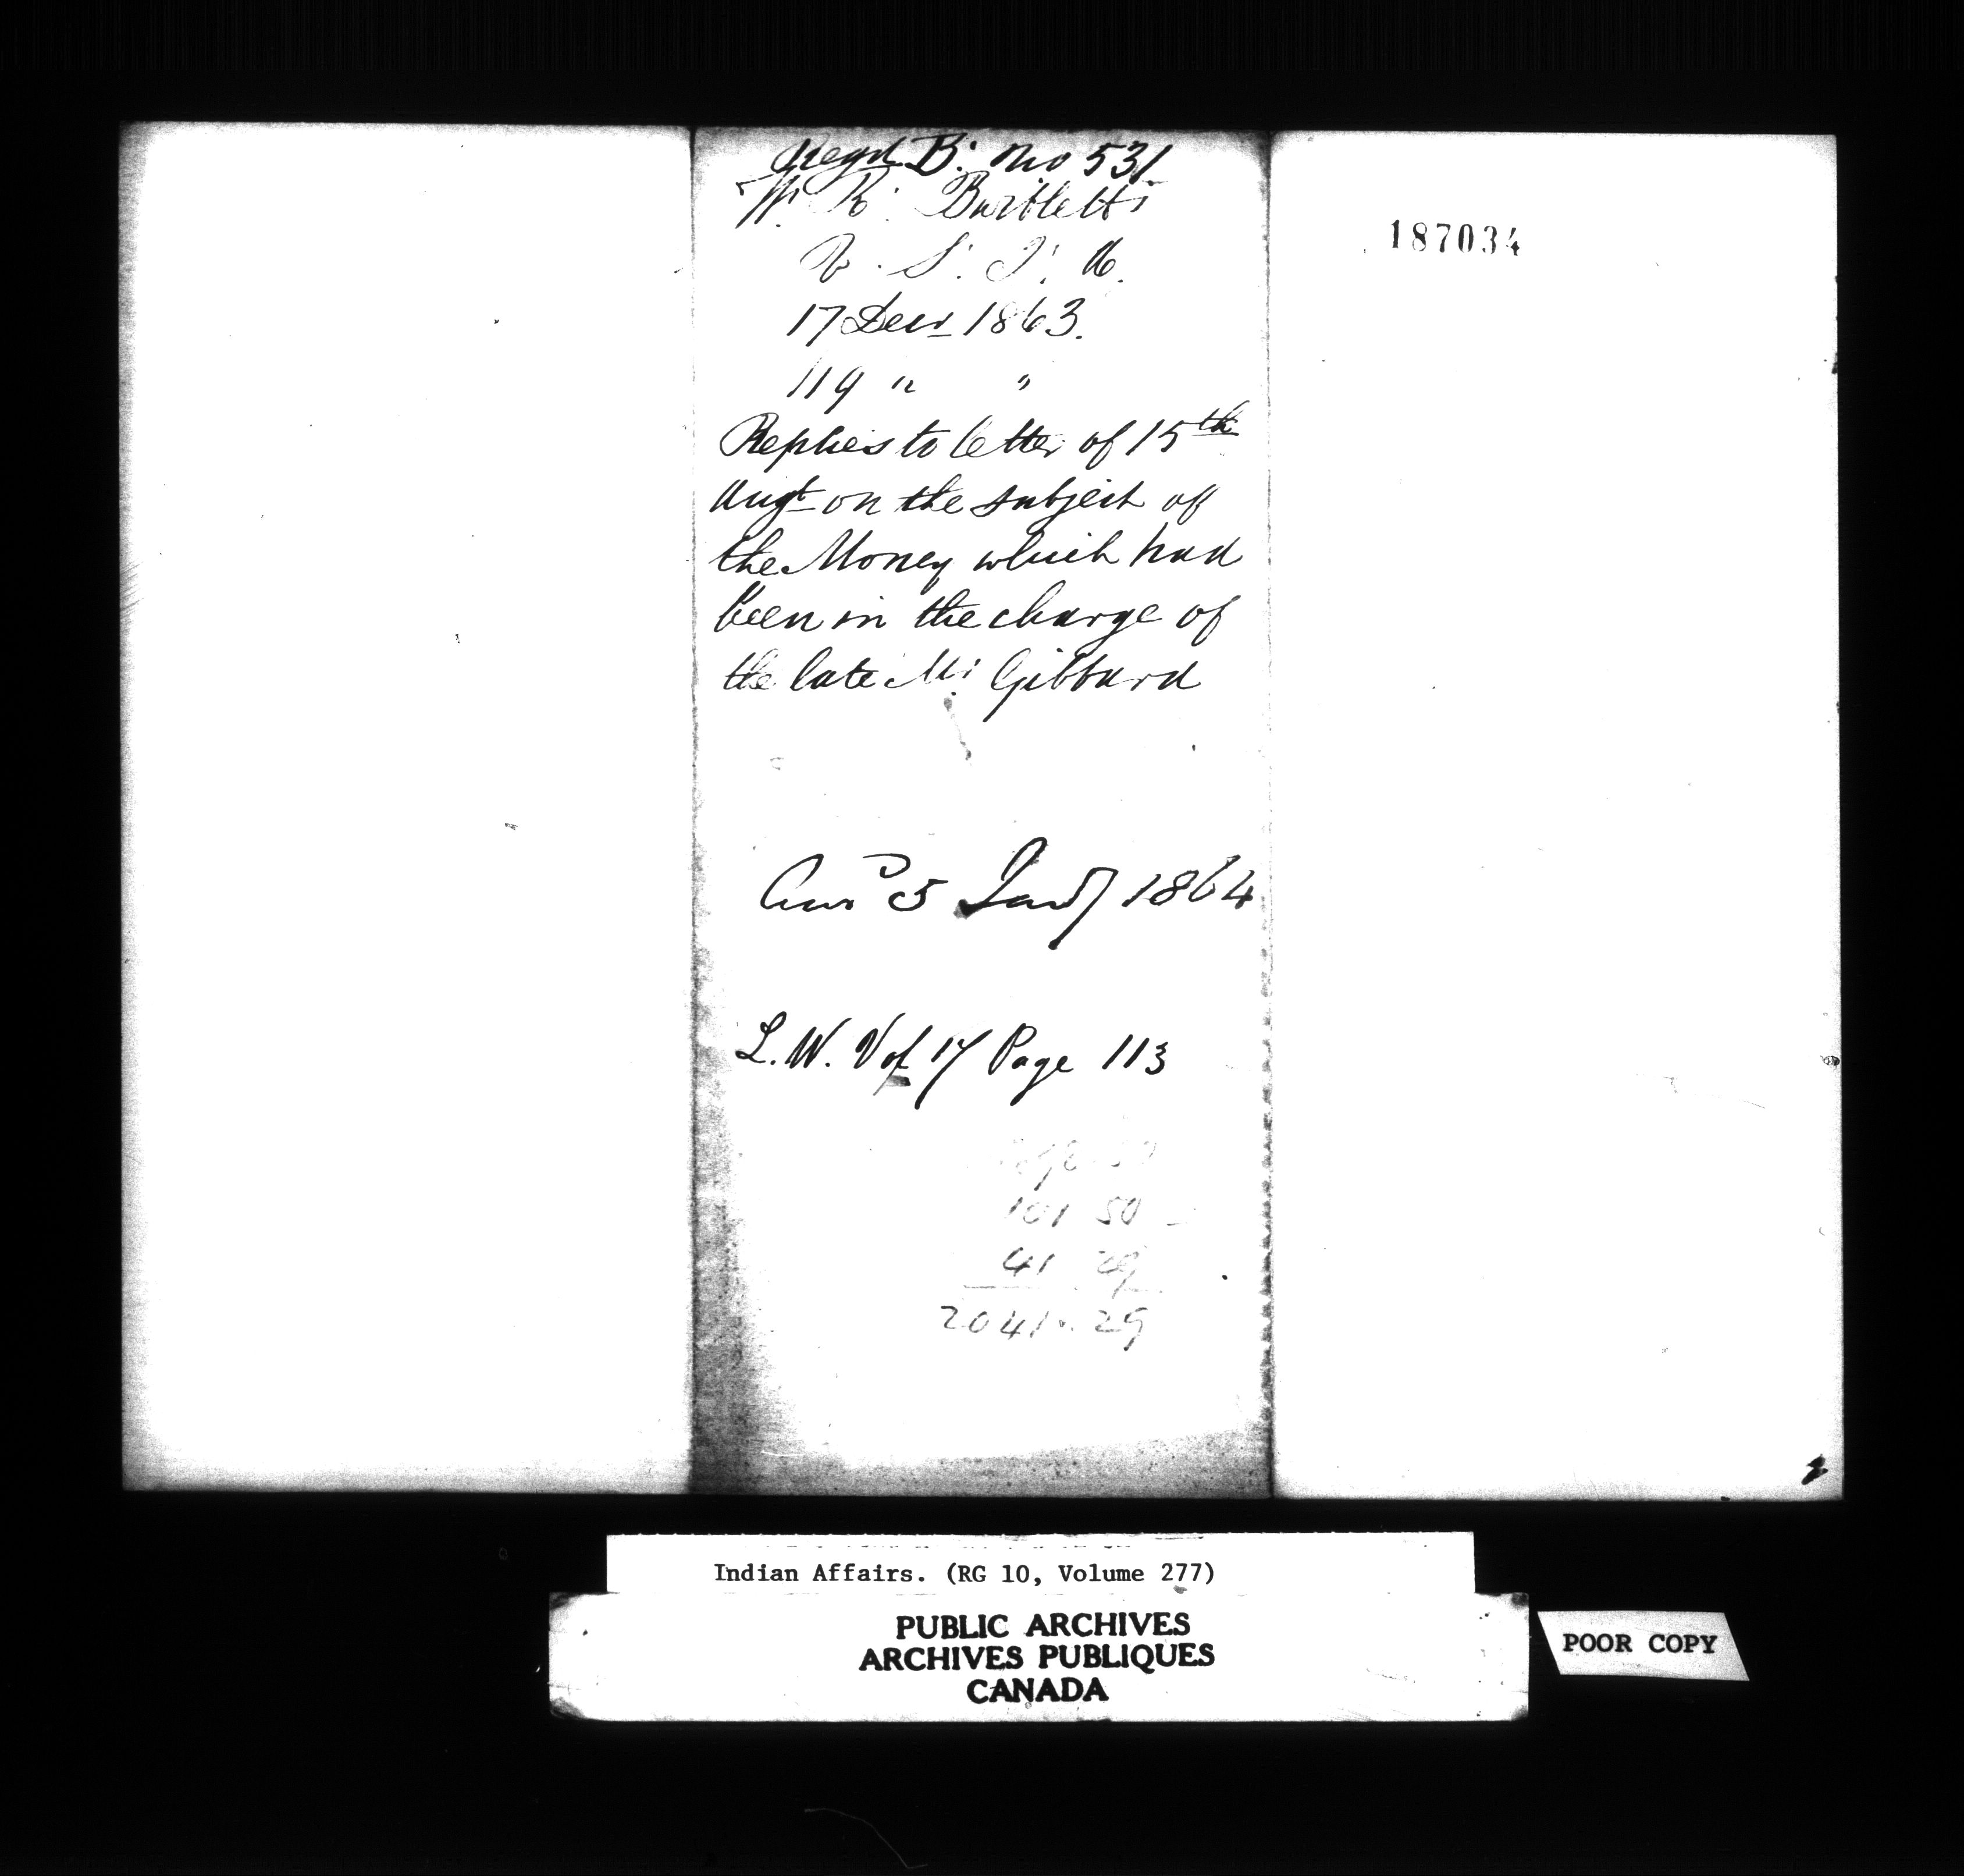 Regd B. No 531
W. R. Bartlett
V. S. I. A.
17 Decr 1863.
119 " "
Replies to letter of 15th
Augt on the subject of
the Money which had
been in the charge of
the late Mr Gibbard
Ansd 5 Jany 1864
L. W. Vol 17 Page 113
101 50
41 29
2041.29
187034
Indian Affairs. (RG 10, Volume 277)
PUBLIC ARCHIVES
ARCHIVES PUBLIQUES
CANADA
POOR COPY